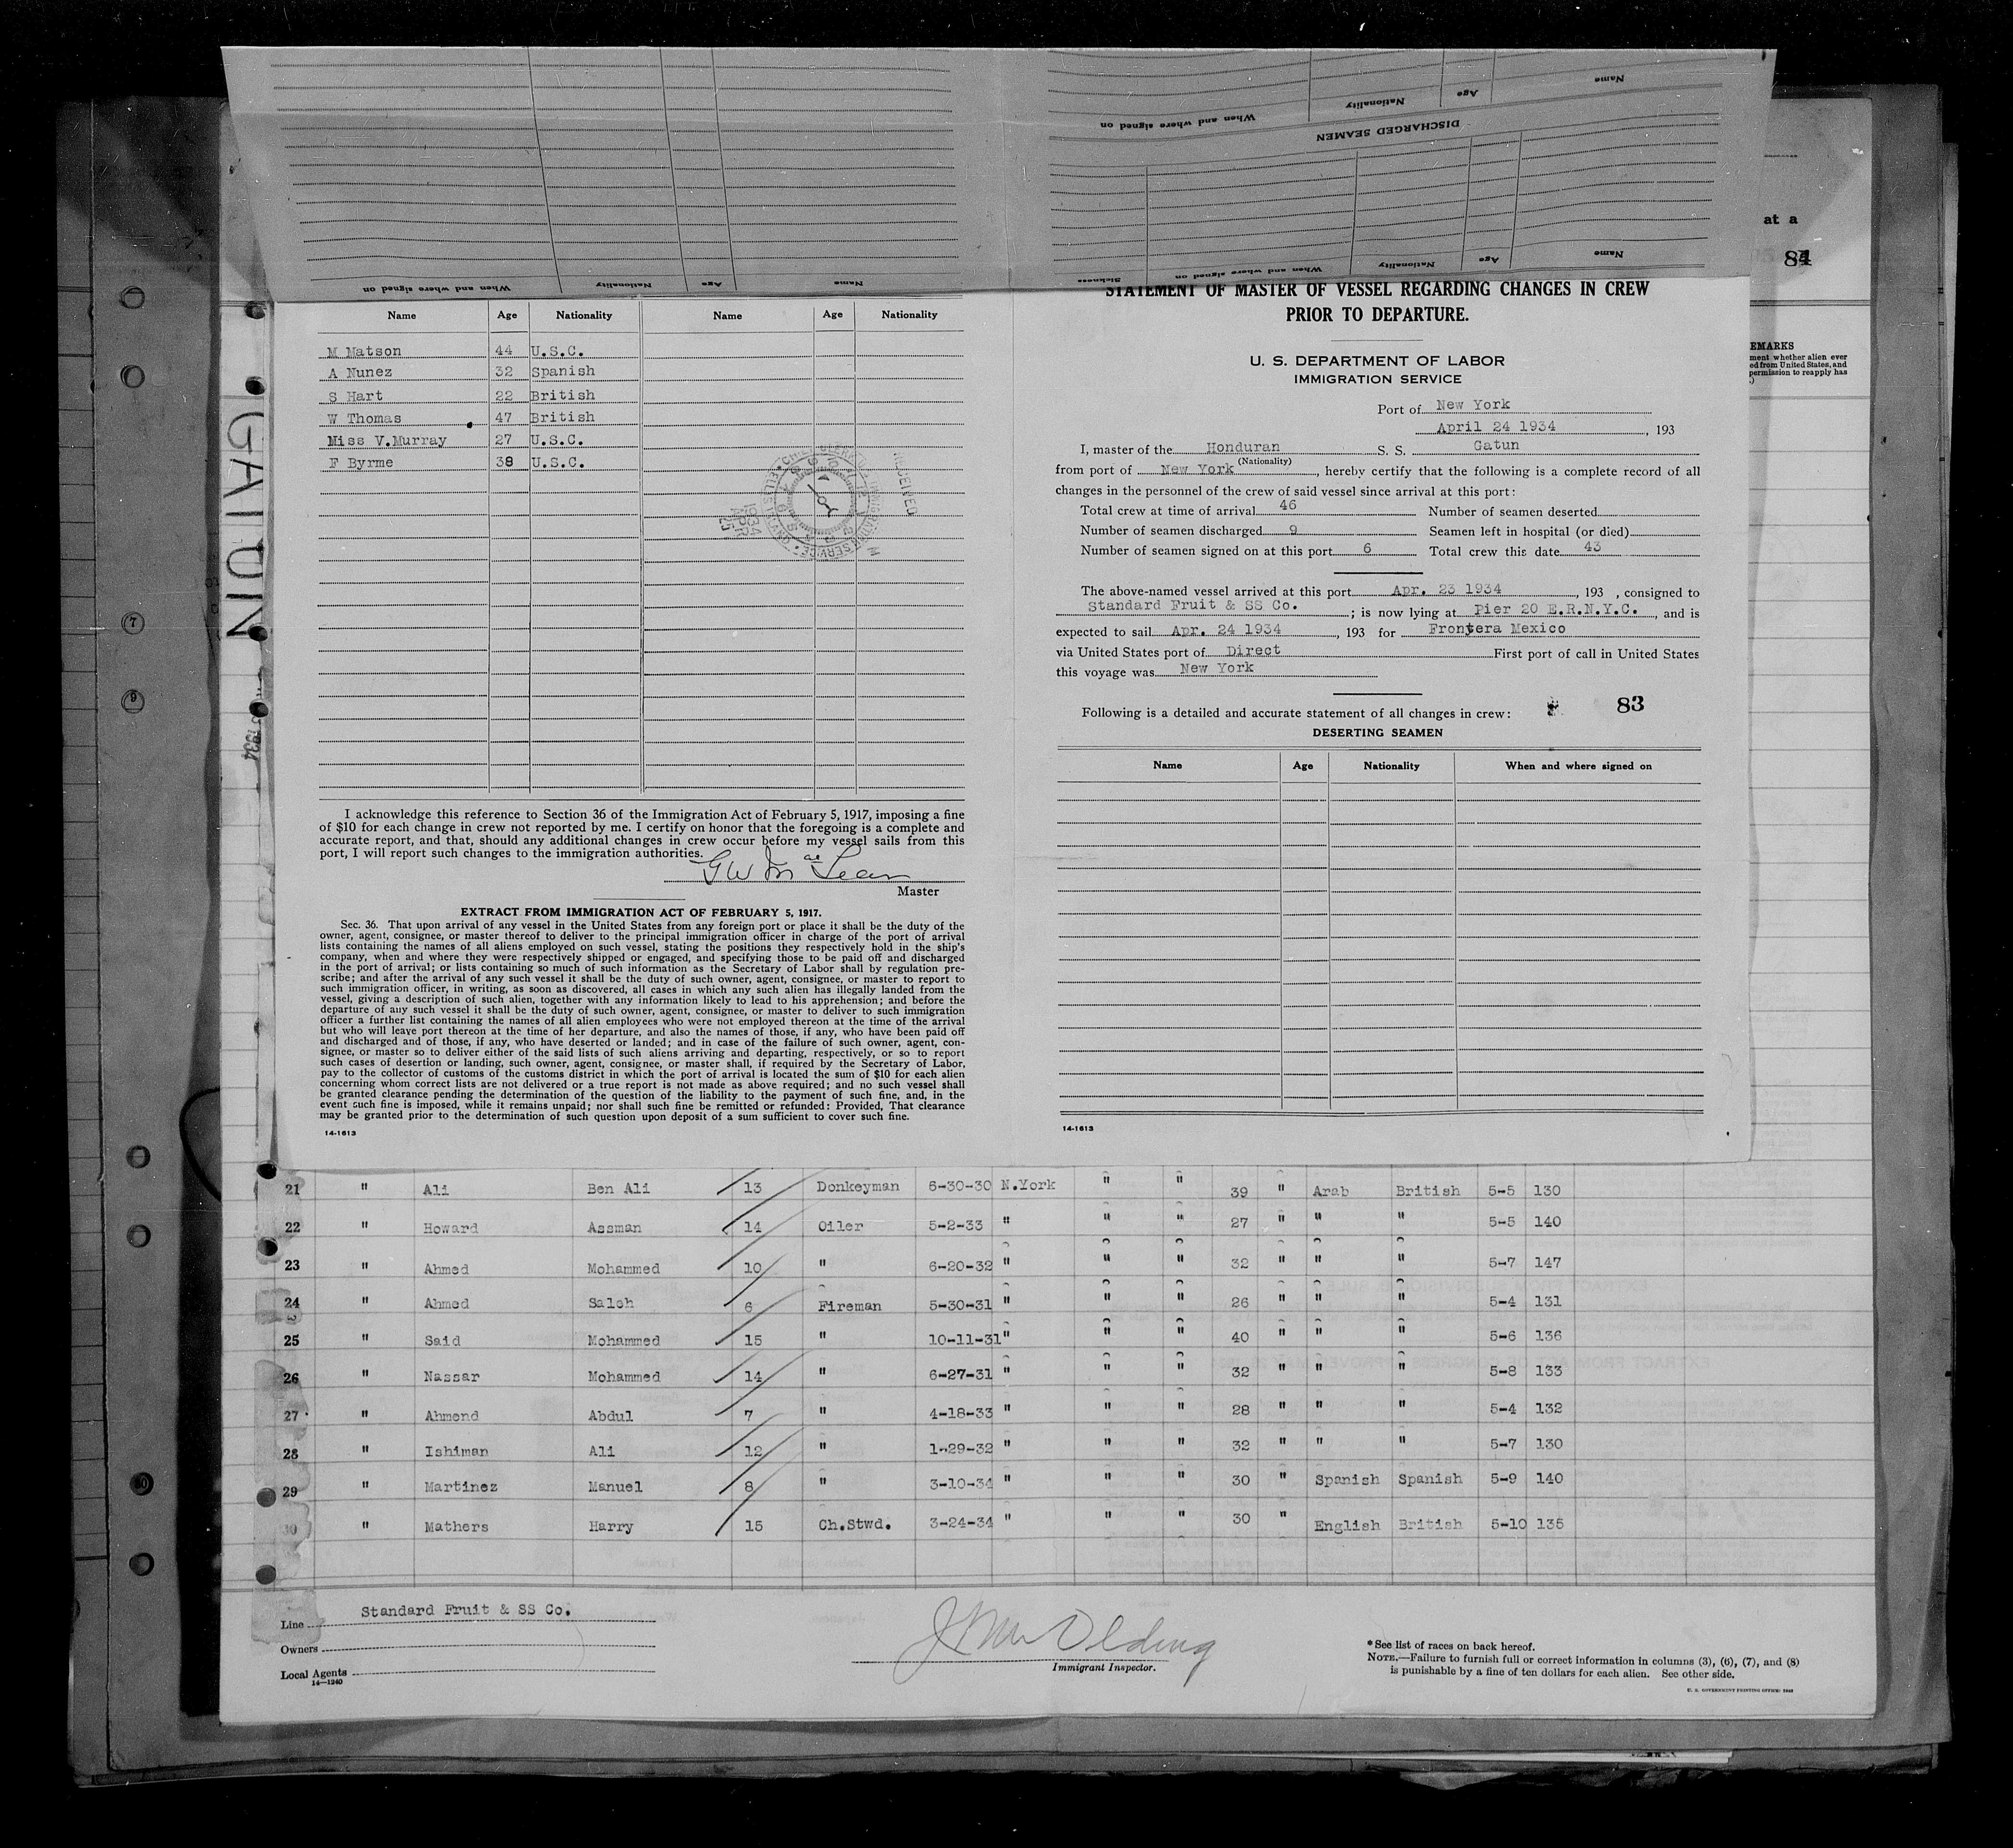 When and where signed on
Nationality
Age
Name
Name
Age
Nationality
When and where signed on
DISCHARGED SEAMEN
Name
Age
Nationality
When and where signed on
Sickness
at a
84
EMARKS
ment whether alien ever
ed from United States, and
permission to reapply has
.)
GATUN
1934
7
9
Name Age Nationality Name Age Nationality
M Matson 44 U.S.C.
A Nunez 32 Spanish
S Hart 22 British
W Thomas 47 British
Miss V.Murray 27 U.S.C.
F Byrme 38 U.S.C.
RECEIVED
1934
APR
25
I acknowledge this reference to Section 36 of the Immigration Act of February 5, 1917, imposing a fine
of $10 for each change in crew not reported by me. I certify on honor that the foregoing is a complete and
accurate report, and that, should any additional changes in crew occur before my vessel sails from this
port, I will report such changes to the immigration authorities.
G W McLean
Master
EXTRACT FROM IMMIGRATION ACT OF FEBRUARY 5, 1917.
Sec. 36. That upon arrival of any vessel in the United States from any foreign port or place it shall be the duty of the
owner, agent, consignee, or master thereof to deliver to the principal immigration officer in charge of the port of arrival
lists containing the names of all aliens employed on such vessel, stating the positions they respectively hold in the ship's
company, when and where they were respectively shipped or engaged, and specifying those to be paid off and discharged
in the port of arrival; or lists containing so much of such information as the Secretary of Labor shall by regulation pre-
scribe; and after the arrival of any such vessel it shall be the duty of such owner, agent, consignee, or master to report to
such immigration officer, in writing, as soon as discovered, all cases in which any such alien has illegally landed from the
vessel, giving a description of such alien, together with any information likely to lead to his apprehension; and before the
departure of any such vessel it shall be the duty of such owner, agent, consignee, or master to deliver to such immigration
officer a further list containing the names of all alien employees who were not employed thereon at the time of the arrival
but who will leave port thereon at the time of her departure, and also the names of those, if any, who have been paid off
and discharged and of those, if any, who have deserted or landed; and in case of the failure of such owner, agent, con-
signee, or master so to deliver either of the said lists of such aliens arriving and departing, respectively, or so to report
such cases of desertion or landing, such owner, agent, consignee, or master shall, if required by the Secretary of Labor,
pay to the collector of customs of the customs district in which the port of arrival is located the sum of $10 for each alien
concerning whom correct lists are not delivered or a true report is not made as above required; and no such vessel shall
be granted clearance pending the determination of the question of the liability to the payment of such fine, and, in the
event such fine is imposed, while it remains unpaid; nor shall such fine be remitted or refunded: Provided, That clearance
may be granted prior to the determination of such question upon deposit of a sum sufficient to cover such fine.
14-1613
STATEMENT OF MASTER OF VESSEL REGARDING CHANGES IN CREW
PRIOR TO DEPARTURE.
U. S. DEPARTMENT OF LABOR
IMMIGRATION SERVICE
Port of New York
April 24 1934, 193
I, master of the Honduran S. S. Gatun
(Nationality)
from port of New York, hereby certify that the following is a complete record of all
changes in the personnel of the crew of said vessel since arrival at this port:
Total crew at time of arrival 46 Number of seamen deserted
Number of seamen discharged 9 Seamen left in hospital (or died)
Number of seamen signed on at this port 6 Total crew this date 43
The above-named vessel arrived at this port Apr. 23 1934, 193 , consigned to
Standard Fruit & SS Co. ; is now lying at Pier 20 E.R.N.Y.C., and is
expected to sail Apr. 24 1934, 193 for Frontera Mexico
via United States port of Direct First port of call in United States
this voyage was New York
83
Following is a detailed and accurate statement of all changes in crew:
DESERTING SEAMEN
Name Age Nationality When and where signed on
14-1613
21 " Ali Ben Ali 13 Donkeyman 6-30-30 N.York " " 39 " Arab British 5-5 130
22 " Howard Assman 14 Oiler 5-2-33 " " " 27 " " " 5-5 140
23 " Ahmed Mohammed 10 " 6-20-32 " " " 32 " " " 5-7 147
24 " Ahmed Saleh 6 Fireman 5-30-31 " " " 26 " " " 5-4 131
25 " Said Mohammed 15 " 10-11-31 " " " 40 " " " 5-6 136
26 " Nassar Mohammed 14 " 6-27-31 " " " 32 " " " 5-8 133
27 " Ahmend Abdul 7 " 4-18-33 " " " 28 " " " 5-4 132
28 " Ishiman Ali 12 " 1-29-32 " " " 32 " " " 5-7 130
29 " Martinez Manuel 8 " 3-10-34 " " " 30 " Spanish Spanish 5-9 140
30 " Mathers Harry 15 Ch.Stwd. 3-24-34 " " " 30 " English British 5-10 135
Line Standard Fruit & SS Co.
Owners
Local Agents
14—1240
Immigrant Inspector.
* See list of races on back hereof.
NOTE.—Failure to furnish full or correct information in columns (3), (6), (7), and (8)
is punishable by a fine of ten dollars for each alien. See other side.
U. S. GOVERNMENT PRINTING OFFICE: